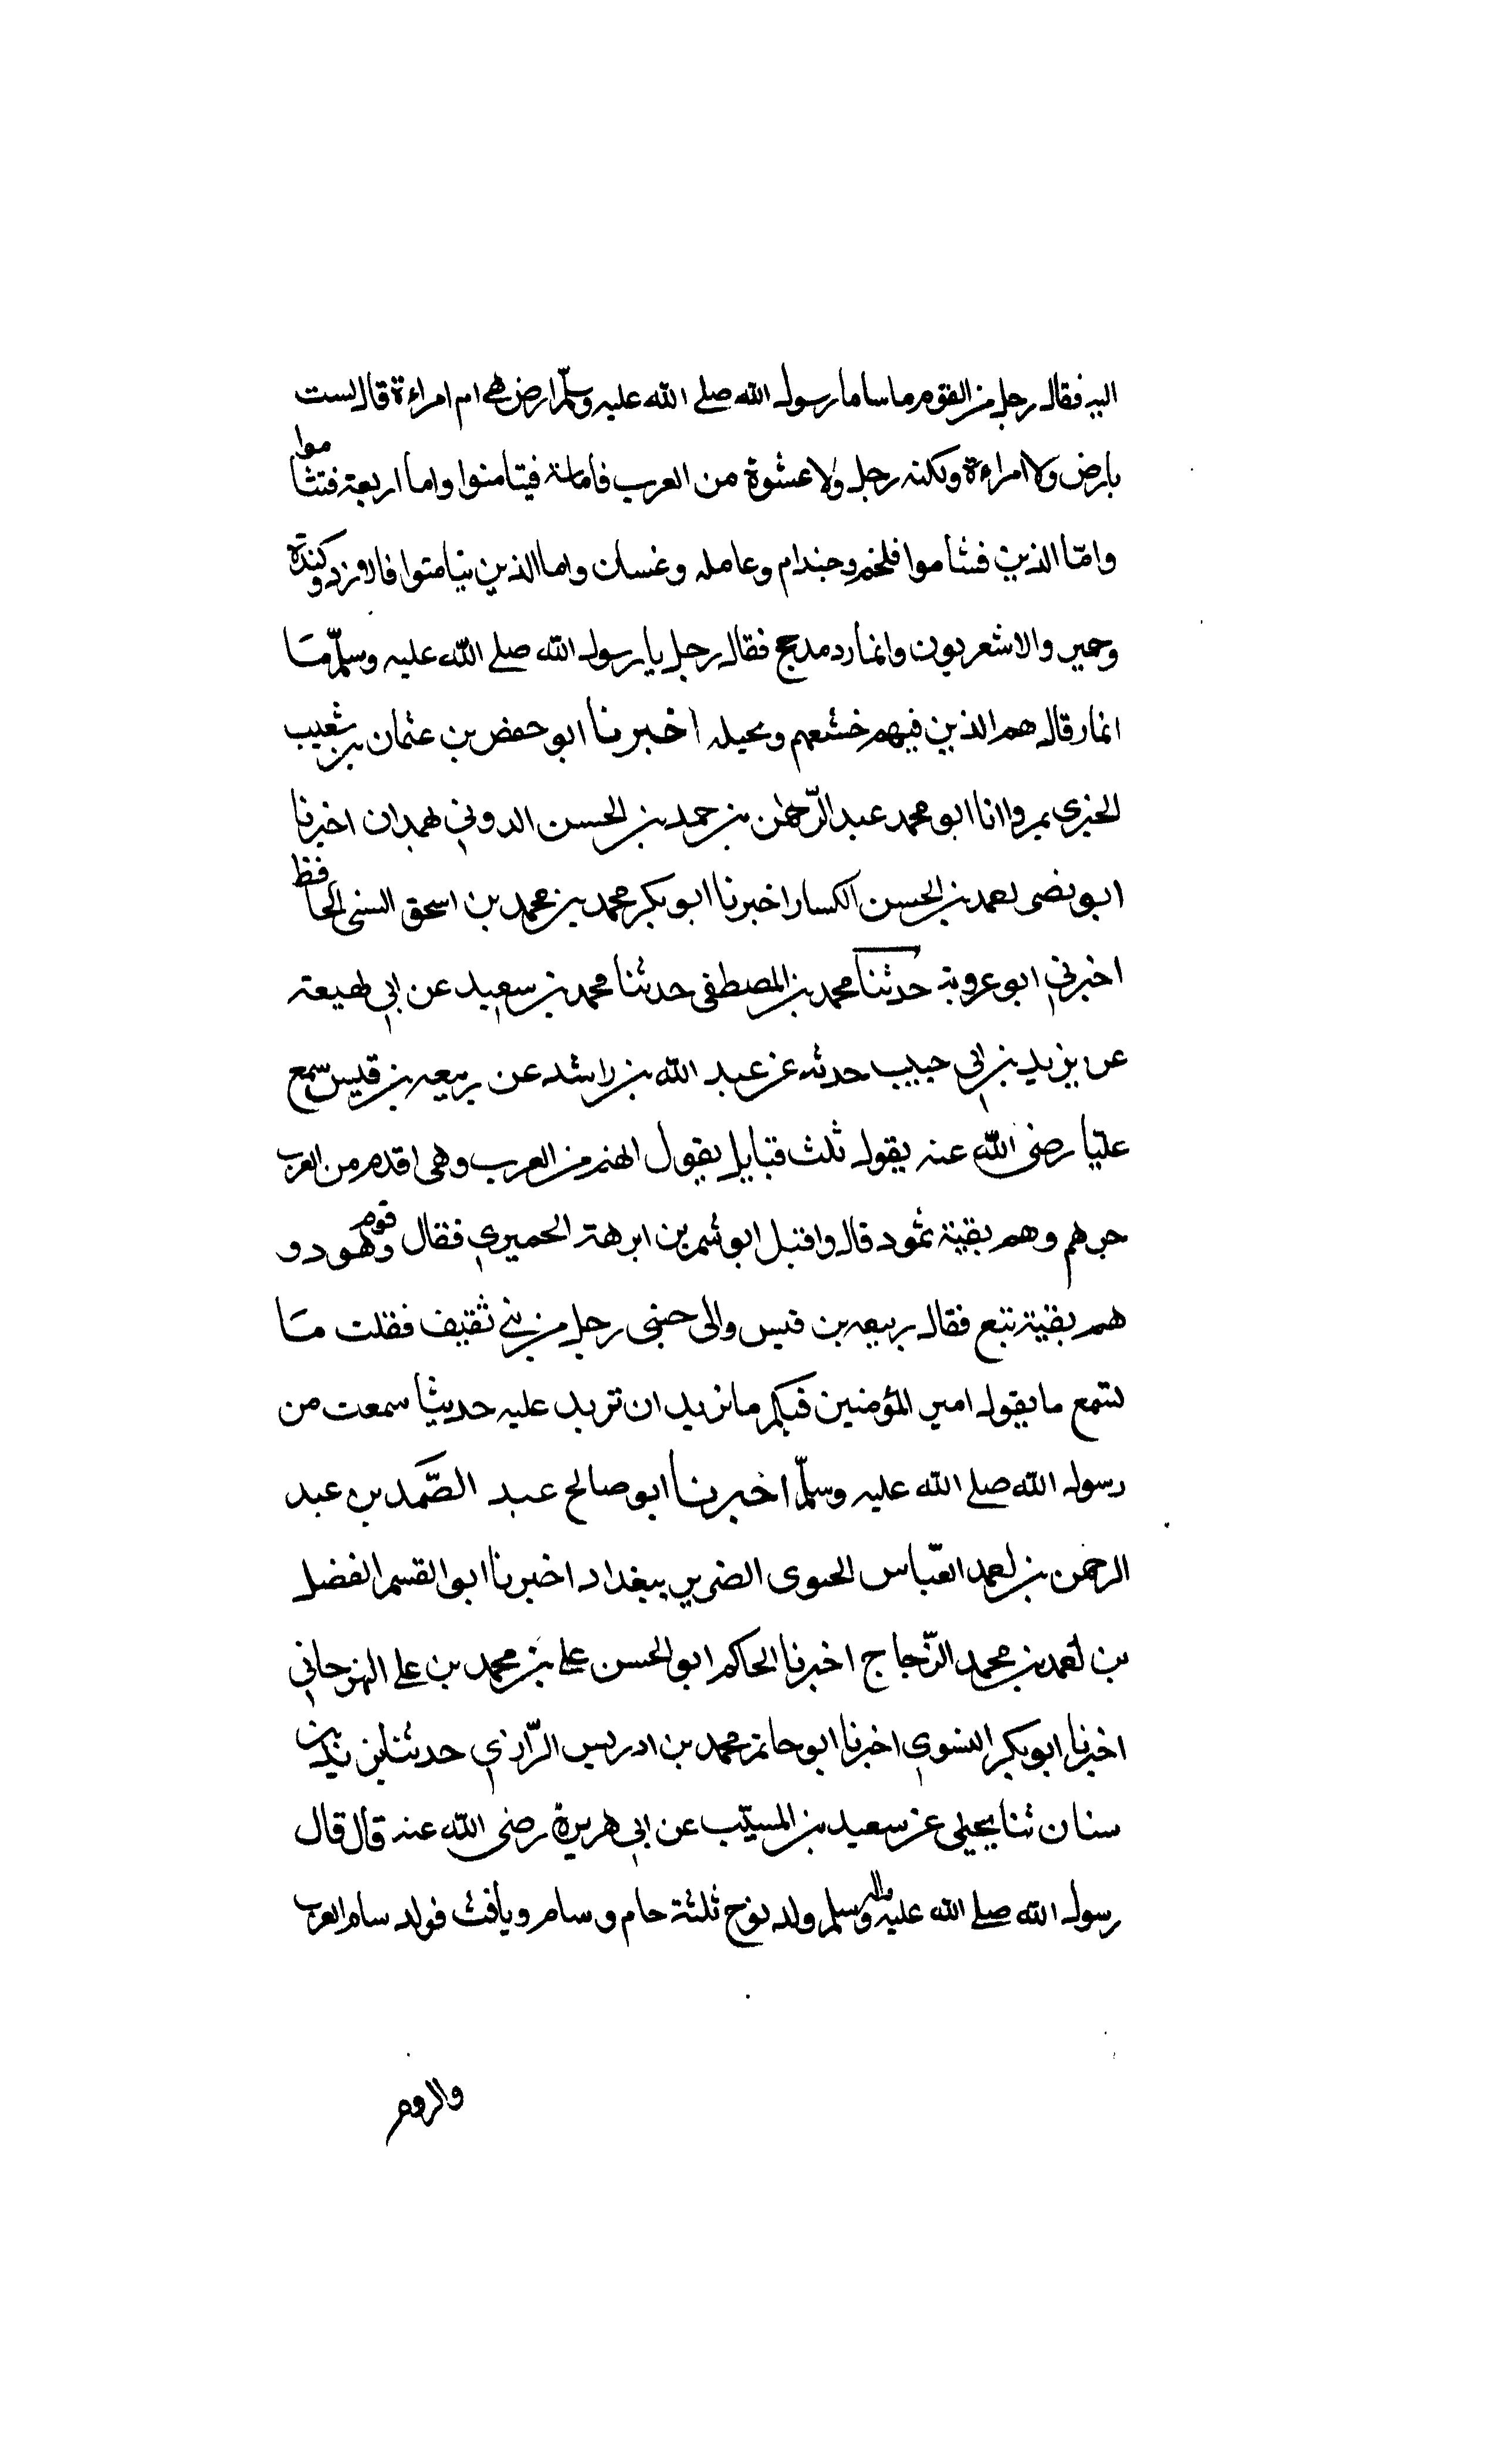 اليه فقال رجل من القوم ما سبا يا رسول الله صلے الله عليه وسلّم ارض هے ام امراءة قال ليست
بارض ولا امراءة ولكنه رجل ولا عشوة من العرب فاماستة فيتامنوا واما اربعة فتشاموا
وامّا الذين فتشاموا فلخم وجذام وعامله وغسان واما الذين يتيامنوا فالازد وكندة
وحمير والاشعريون وانمارد مدحج فقال رجل يا رسول الله صلے الله عليه وسلّم مَا
انمار قال هم الذين فيهم خثعم وبجيله اخبرنا ابو حفص بن عثمان بن شعيب
الخبرى بمرو انا ابو محمد عبد الرّحمٰن بن حمد بن الحسن الدوني بهمدان اخبرنا
ابو نصر احمد بن الحسن الكسار اخبرنا ابو بكر محمد بن محمد بن اسحق السنى الحافظ
اخبرني ابو عروبة حدثنا محمد بن المصطفى حدثنا محمد بن سعيد عن ابي لهيعة
عن يزيد بن ابي حبيب حدثه عن عبد الله بن راشد عن ربيعه بن قيس سمع
عليّا رضى الله عنه يقول ثلث قبايل يقول انهم من العرب وهى اقدم من العرب
جرهم وهم بقية ثمود قال واقبل ابو شمر بن ابرهة الحميري فقال وقوم هود و
هم بقية تبع فقال ربيعه بن قيس والى جنبى رجل من بني ثقيف فقلت مَا
لتسمع ما يقول امير المؤمنين فيكم ما نريد ان تريد عليه حديثا سمعت من
رسول الله صلے الله عليه وسلّم اخبرنا ابو صالح عبد الصّمد بن عبد
الرحمٰن بن احمد العبّاس الحنوى الضرير ببغداد اخبرنا ابو القسم الفضل
بن احمد بن محمد الزّجاج اخبرنا الحاكم ابو الحسن علے بن محمد بن على المهرجاني
اخبرنا ابو بكر النسوي اخبرنا ابو حاتم محمد بن ادريس الرّازي حدثنا بن يزيد بن
سنان ثنا يحيى عن سعيد بن المسيّب عن ابي هريرة رضى الله عنه قال قال
رسول الله صلے الله عليه واله وسلم ولد نوح ثلثة حام وسام ويافث فولد سام العرب
والروم